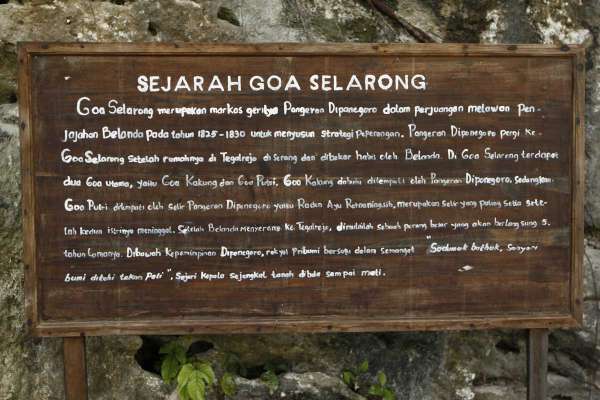 SEJARAH GOA SELARONG
Goa Selarong merupakan markas gerilya Pangeran Diponegoro dalam perjuangan melawan Pen-
jajahan Belanda Pada tahun 1825-1830 untuk menyusun strategi Peperangan. Pangeran Diponegoro pergi Ke
Goa Selarong setelah rumahnya di Tegalrejo diserang dan dibakar habis oleh Belanda. Di Goa Selarong terdapat
dua Goa utama, yaitu Goa Kakung dan Goa Putri. Goa Kakung dahulu ditempati oleh Pangeran Diponegoro, sedangkan
Goa Putri ditempati oleh selir Pangeran Diponegoro yaitu Raden Ayu Retnaningsih, merupakan selir yang paling setia sete-
lah kedua istrinya meninggal. Setelah Belanda Menyerang Ke Tegalrejo, dimulailah sebuah perang besar yang akan berlangsung 5
tahun lamanya. Dibawah Kepemimpinan Diponegoro, rakyat Pribumi bersatu dalam semangat "Sadumuk bathuk, Sanyari
bumi ditohi tekan Pati", Sejari Kepala sejengkal tanah dibela sampai mati.